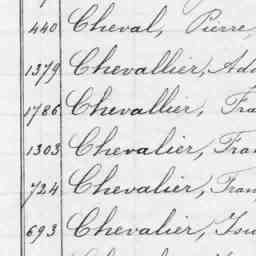 440 Cheval, Pierre,
1379 Chevallier, Ado
1786 Chevallier, Fra
1303 Chevalier, Fran
724 Chevalier, Fran
693 Chevalier, Isi